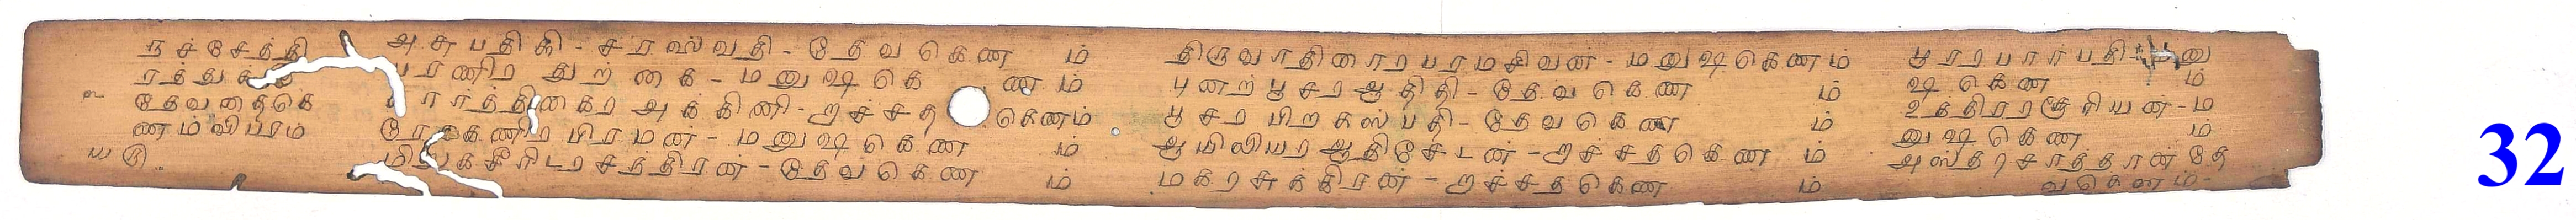 நச்சேத்தி
ரத்துக்கு
தேவதைகெ
ணம்விபரம்
அசுபதிகி - சரஸ்வதி - தேவகெணம்
பரணிர துற்கை - மனுஷகெணம்
கார்த்திகைர அக்கினி - றாச்சதகெணம்
ரோகணிர பிரமன் - மனுஷகெணம்
மிருகசீரிடர சந்திரன் - தேவகெணம்
திருவாதிரைர பரமசிவன் - மனுஷகெணம்
புனற்பூசர ஆதிதி - தேவகெணம்
பூசர பிறகஸ்பதி - தேவகெணம்
ஆயிலியர ஆதிசேடன் - றாச்சதகெணம்
மகரசுக்கிரன் - றாச்சதகெணம்
பூரர பார்பதி மனு
ஷகெணம்
உத்திரரசூரியன் - ம
னுஷகெணம்
அஸ்தரசாத்தான் தே
வகெணம் -
32